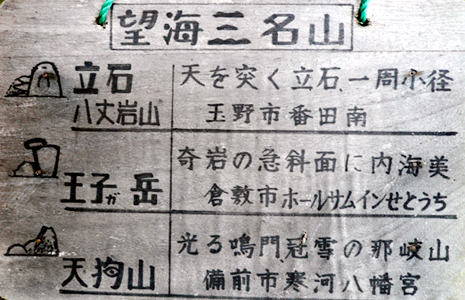 望海三名山
立石
八丈岩山
天を突く立石、一周小径
玉野市番田南
王子ガ岳
奇岩の急斜面に内海美
倉敷市ホールサムインせとうち
天狗山
光る鳴門冠雪の那岐山
備前市寒河八幡宮